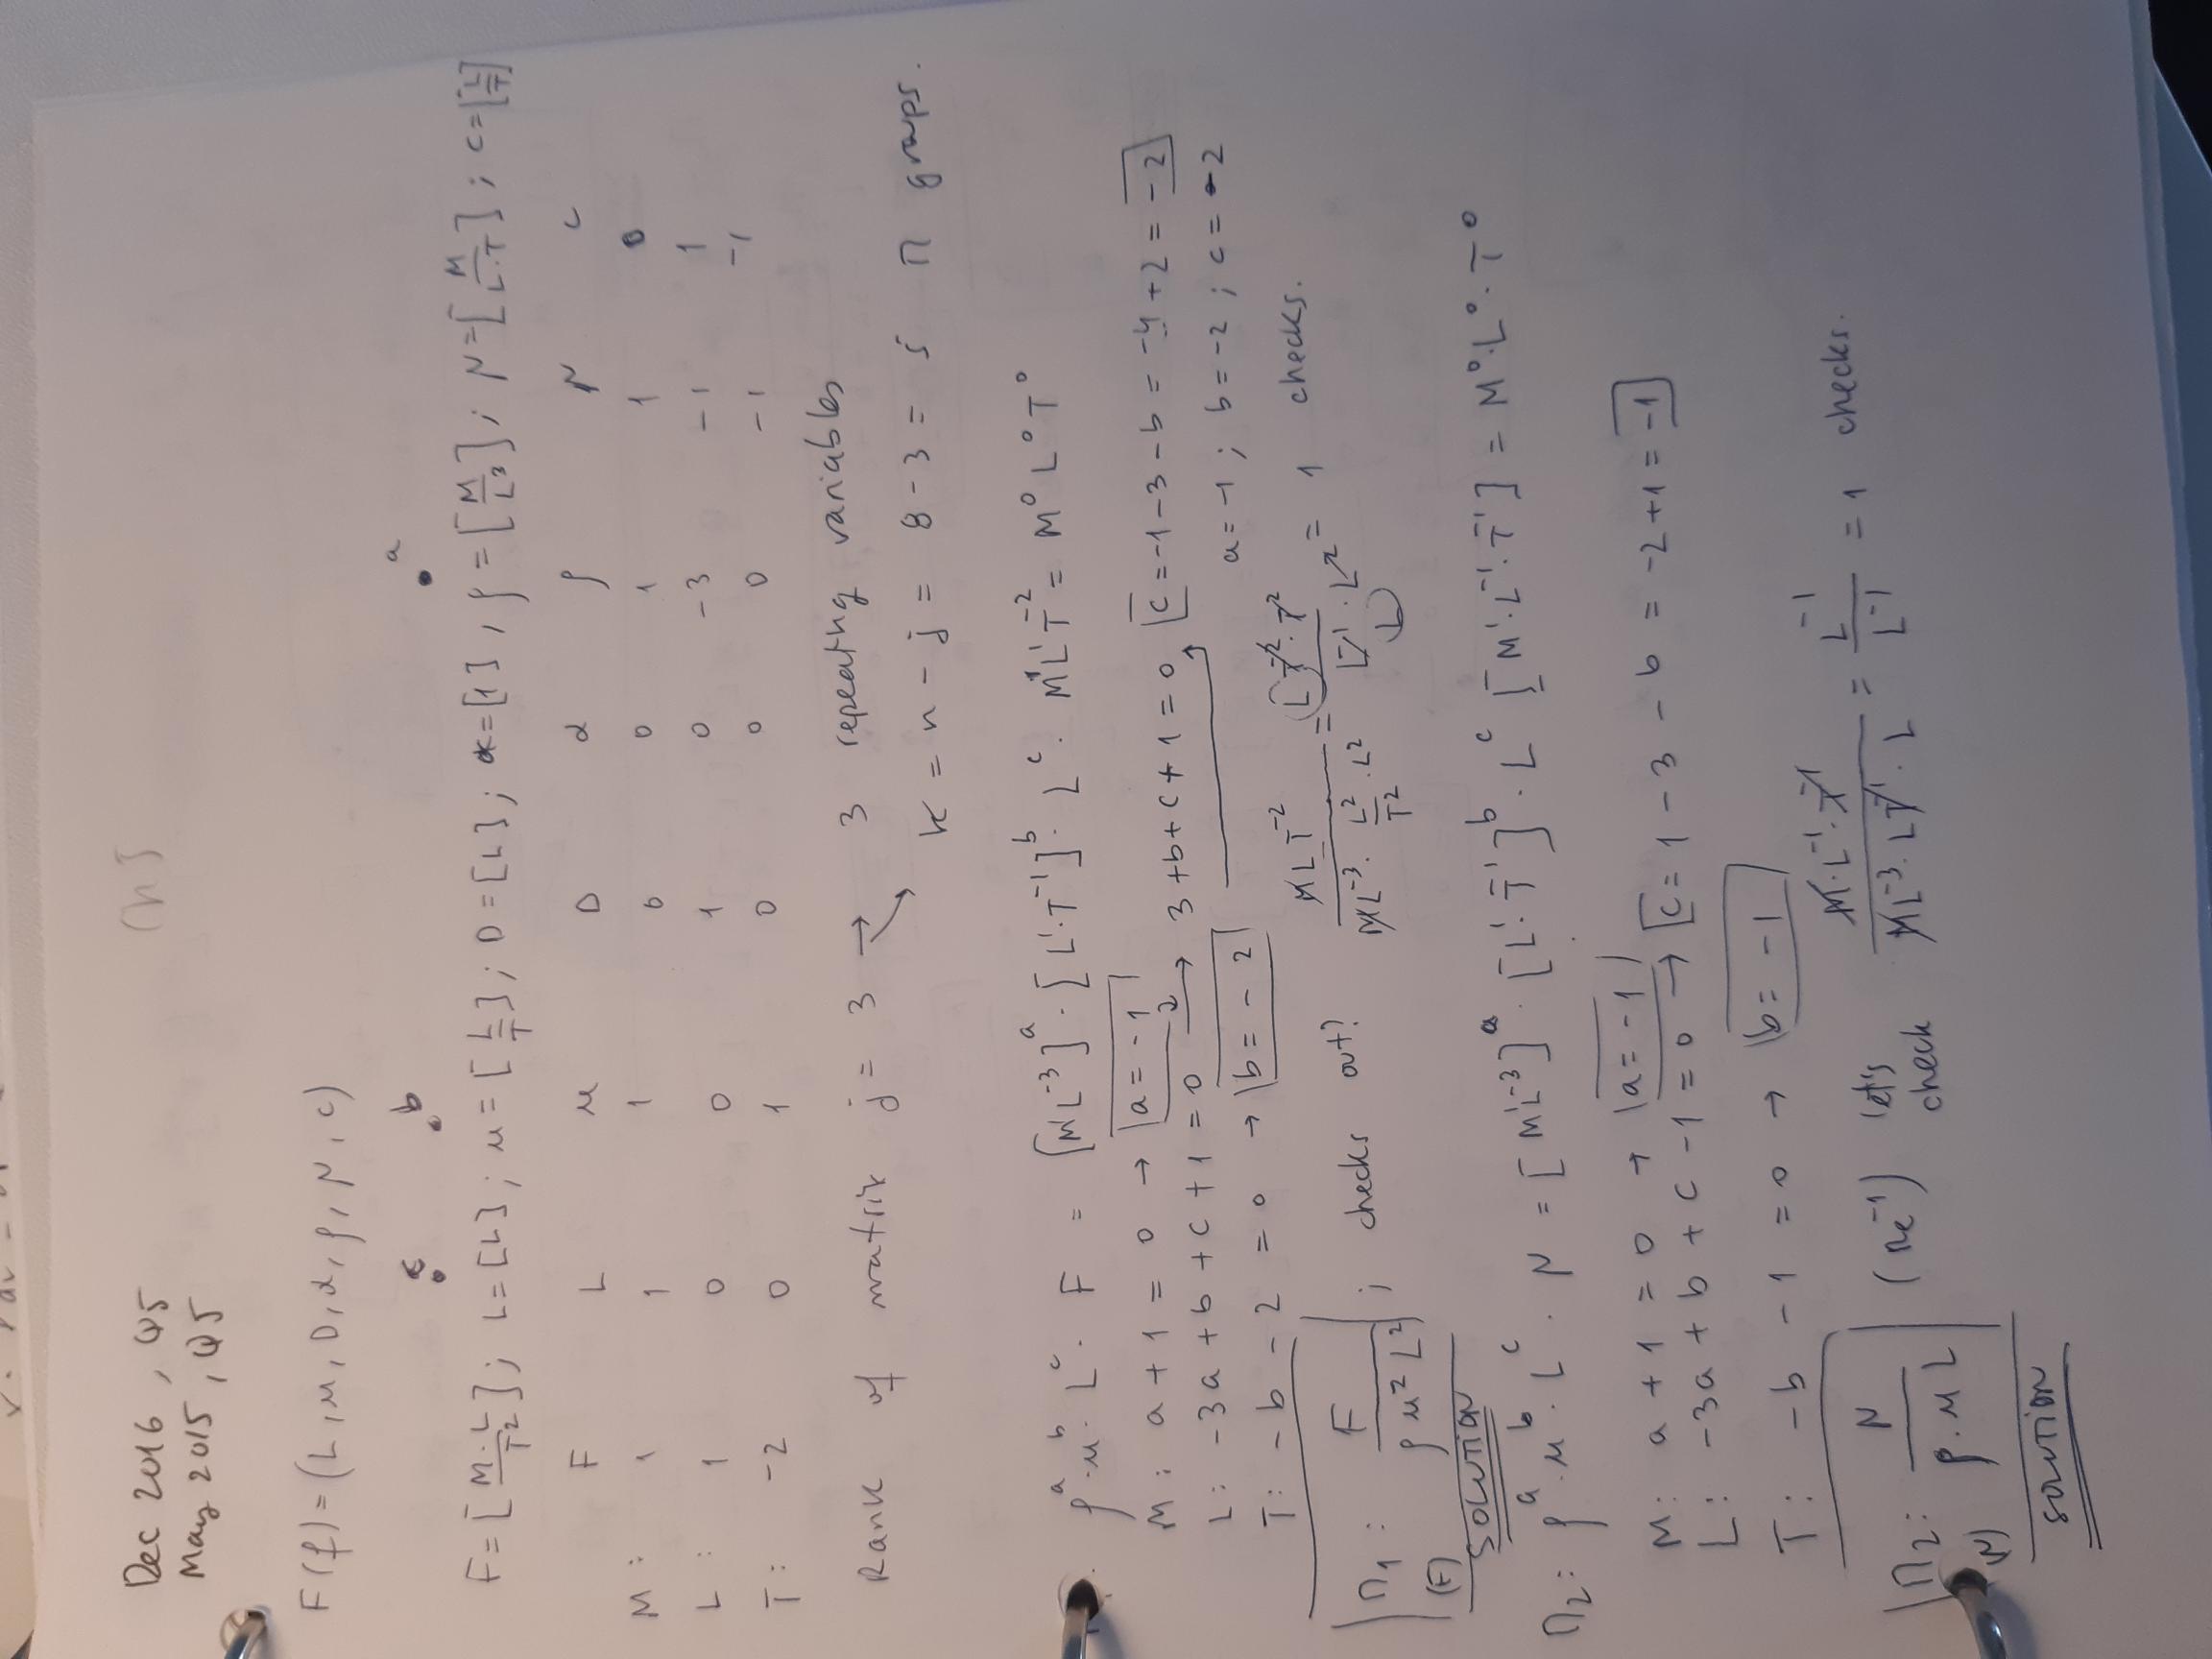 Dec 2016, Q5
Ch 5
May 2015, Q5
F(f) = (L, u, D, α, ρ, μ, c)
c b a
F = [M·L/T²]; L = [L]; u = [L/T]; D = [L]; α = [1], ρ = [M/L³]; μ = [M/L·T]; c = [L/T]
F L u D α ρ μ c
M: 1 1 1 0 0 1 1 0
L: 1 0 0 1 0 -3 -1 1
T: -2 0 1 0 0 0 -1 -1
Rank of matrix j = 3 → 3 repeating variables
k = n - j = 8 - 3 = 5 Π groups.
ρ^a · u^b · L^c · F = [M¹L⁻³]^a · [L¹·T⁻¹]^b · L^c · M¹L¹T⁻² = M⁰ L⁰ T⁰
M: a + 1 = 0 → a = -1
L: -3a + b + c + 1 = 0 → 3 + b + c + 1 = 0 c = -1 - 3 - b = -4 + 2 = -2
T: -b - 2 = 0 → b = -2 a = -1; b = -2; c = -2
Π₁: (F) F/(ρ u² L²); checks out? MLT⁻²/(ML⁻³ · L²/T² · L²) = L T⁻²·T²/(L⁻¹·L²) = 1 checks.
L
SOLUTION
Π₂: ρ^a · u^b · L^c · μ = [M¹L⁻³]^a · [L¹·T⁻¹]^b · L^c [M¹·L⁻¹·T⁻¹] = M⁰·L⁰·T⁰
M: a + 1 = 0 → a = -1
L: -3a + b + c - 1 = 0 → c = 1 - 3 - b = -2 + 1 = -1
T: -b - 1 = 0 → b = -1
Π₂: (μ) μ/(ρ·u L) (Re⁻¹) let's check M·L⁻¹·T⁻¹/(ML⁻³·LT⁻¹·L) = L⁻¹/L⁻¹ = 1 checks.
SOLUTION